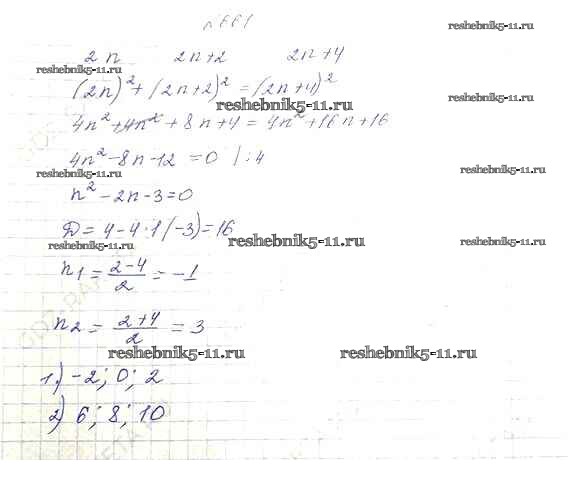 №661
2n 2n+2 2n+4
(2n)²+(2n+2)²=(2n+4)²
4n²+4n²+8n+4=4n²+16n+16
4n²-8n-12=0 |:4
n²-2n-3=0
D=4-4·1(-3)=16
n₁=\frac{2-4}{2}=-1
n₂=\frac{2+4}{2}=3
1) -2; 0; 2
2) 6; 8; 10
reshebnik5-11.ru
reshebnik5-11.ru
reshebnik5-11.ru
reshebnik5-11.ru
reshebnik5-11.ru
reshebnik5-11.ru
reshebnik5-11.ru
reshebnik5-11.ru
reshebnik5-11.ru
reshebnik5-11.ru
reshebnik5-11.ru